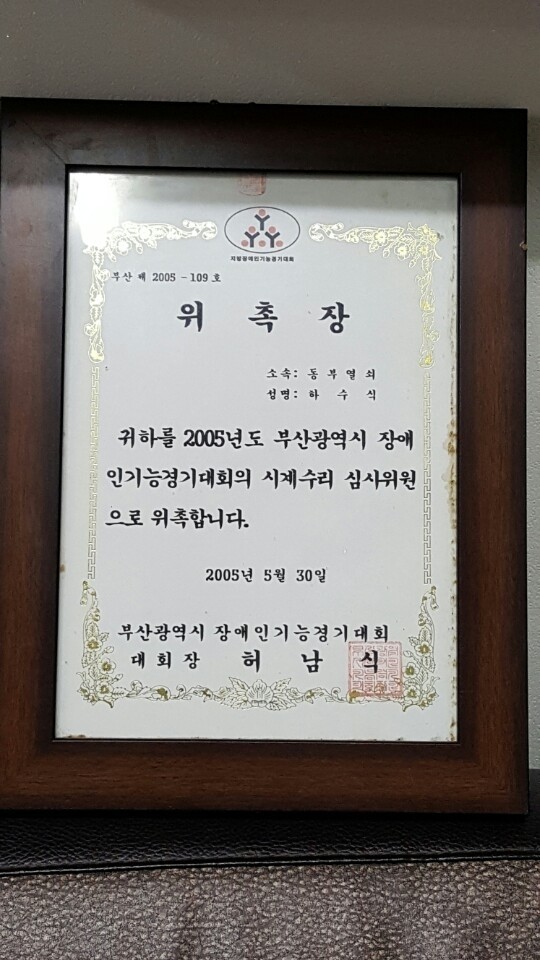 지방장애인기능경기대회
부산 제 2005 - 109 호
위 촉 장
소속: 동 부 열 쇠
성명: 하 수 식
귀하를 2005년도 부산광역시 장애
인기능경기대회의 시계수리 심사위원
으로 위촉합니다.
2005년 5월 30일
부산광역시 장애인기능경기대회
대 회 장 허 남 식